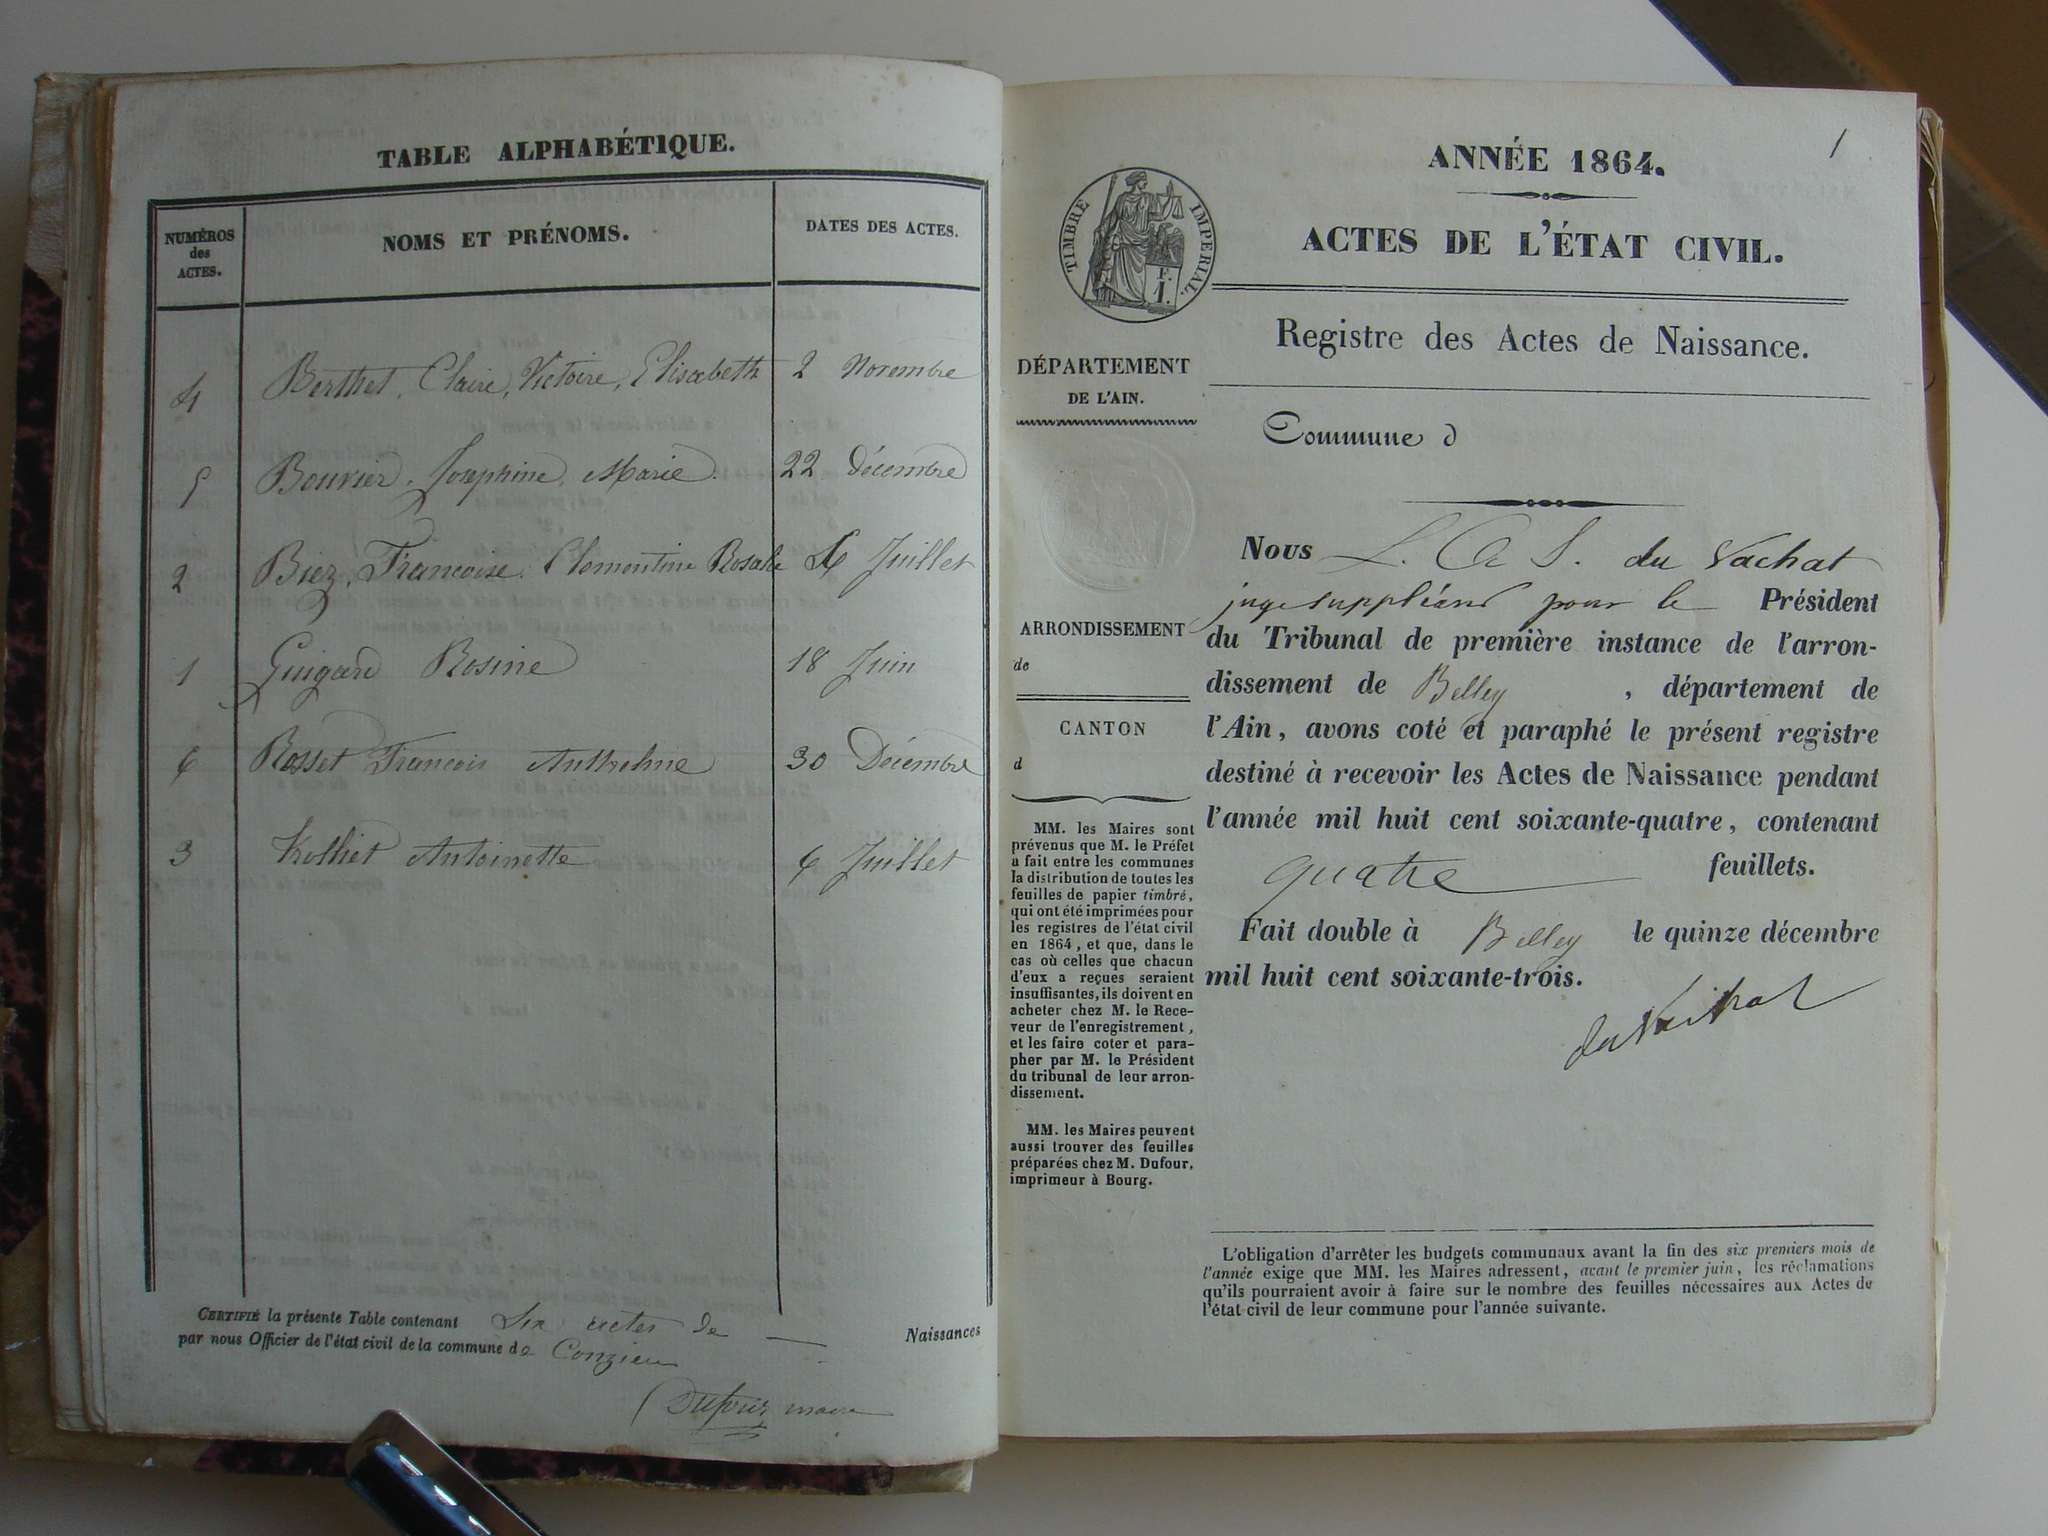 TABLE ALPHABÉTIQUE.
NUMÉROS
des
ACTES.
NOMS ET PRÉNOMS.
DATES DES ACTES.
4 Berthet, Claire, Victoire, Elisabeth 2 Novembre
5 Bouvier, Josephine, Marie. 22 décembre
2 Biez, Francoise Clementine Rosalie Juillet
1 Guigard Rosine 18 Juin
6 Rosset Francois Anthelme 30 Décembre
3 Antoinette 6 Juillet
CERTIFIÉ la présente Table contenant Six actes de Naissances
par nous Officier de l'état civil de la commune de Conzieu
maire
1
ANNÉE 1864.
ACTES DE L'ÉTAT CIVIL.
TIMBRE IMPERIAL.
Registre des Actes de Naissance.
DÉPARTEMENT
DE L'AIN.
Commune d
ARRONDISSEMENT
de
CANTON
d
MM. les Maires sont
prévenus que M. le Préfet
a fait entre les communes
la distribution de toutes les
feuilles de papier timbré,
qui ont été imprimées pour
les registres de l'état civil
en 1864, et que, dans le
cas où celles que chacun
d'eux a reçues seraient
insuffisantes, ils doivent en
acheter chez M. le Rece-
veur de l'enregistrement,
et les faire coter et para-
pher par M. le Président
du tribunal de leur arron-
dissement.
MM. les Maires peuvent
aussi trouver des feuilles
préparées chez M. Dufour,
imprimeur à Bourg.
Nous L. A S. du Vachat
juge suppléant pour le Président
du Tribunal de première instance de l'arron-
dissement de Belley , département de
l'Ain, avons coté et paraphé le présent registre
destiné à recevoir les Actes de Naissance pendant
l'année mil huit cent soixante-quatre, contenant
quatre feuillets.
Fait double à Belley le quinze décembre
mil huit cent soixante-trois.
du Vachat
L'obligation d'arrêter les budgets communaux avant la fin des six premiers mois de
l'année exige que MM. les Maires adressent, avant le premier juin, les réclamations
qu'ils pourraient avoir à faire sur le nombre des feuilles nécessaires aux Actes de
l'état civil de leur commune pour l'année suivante.